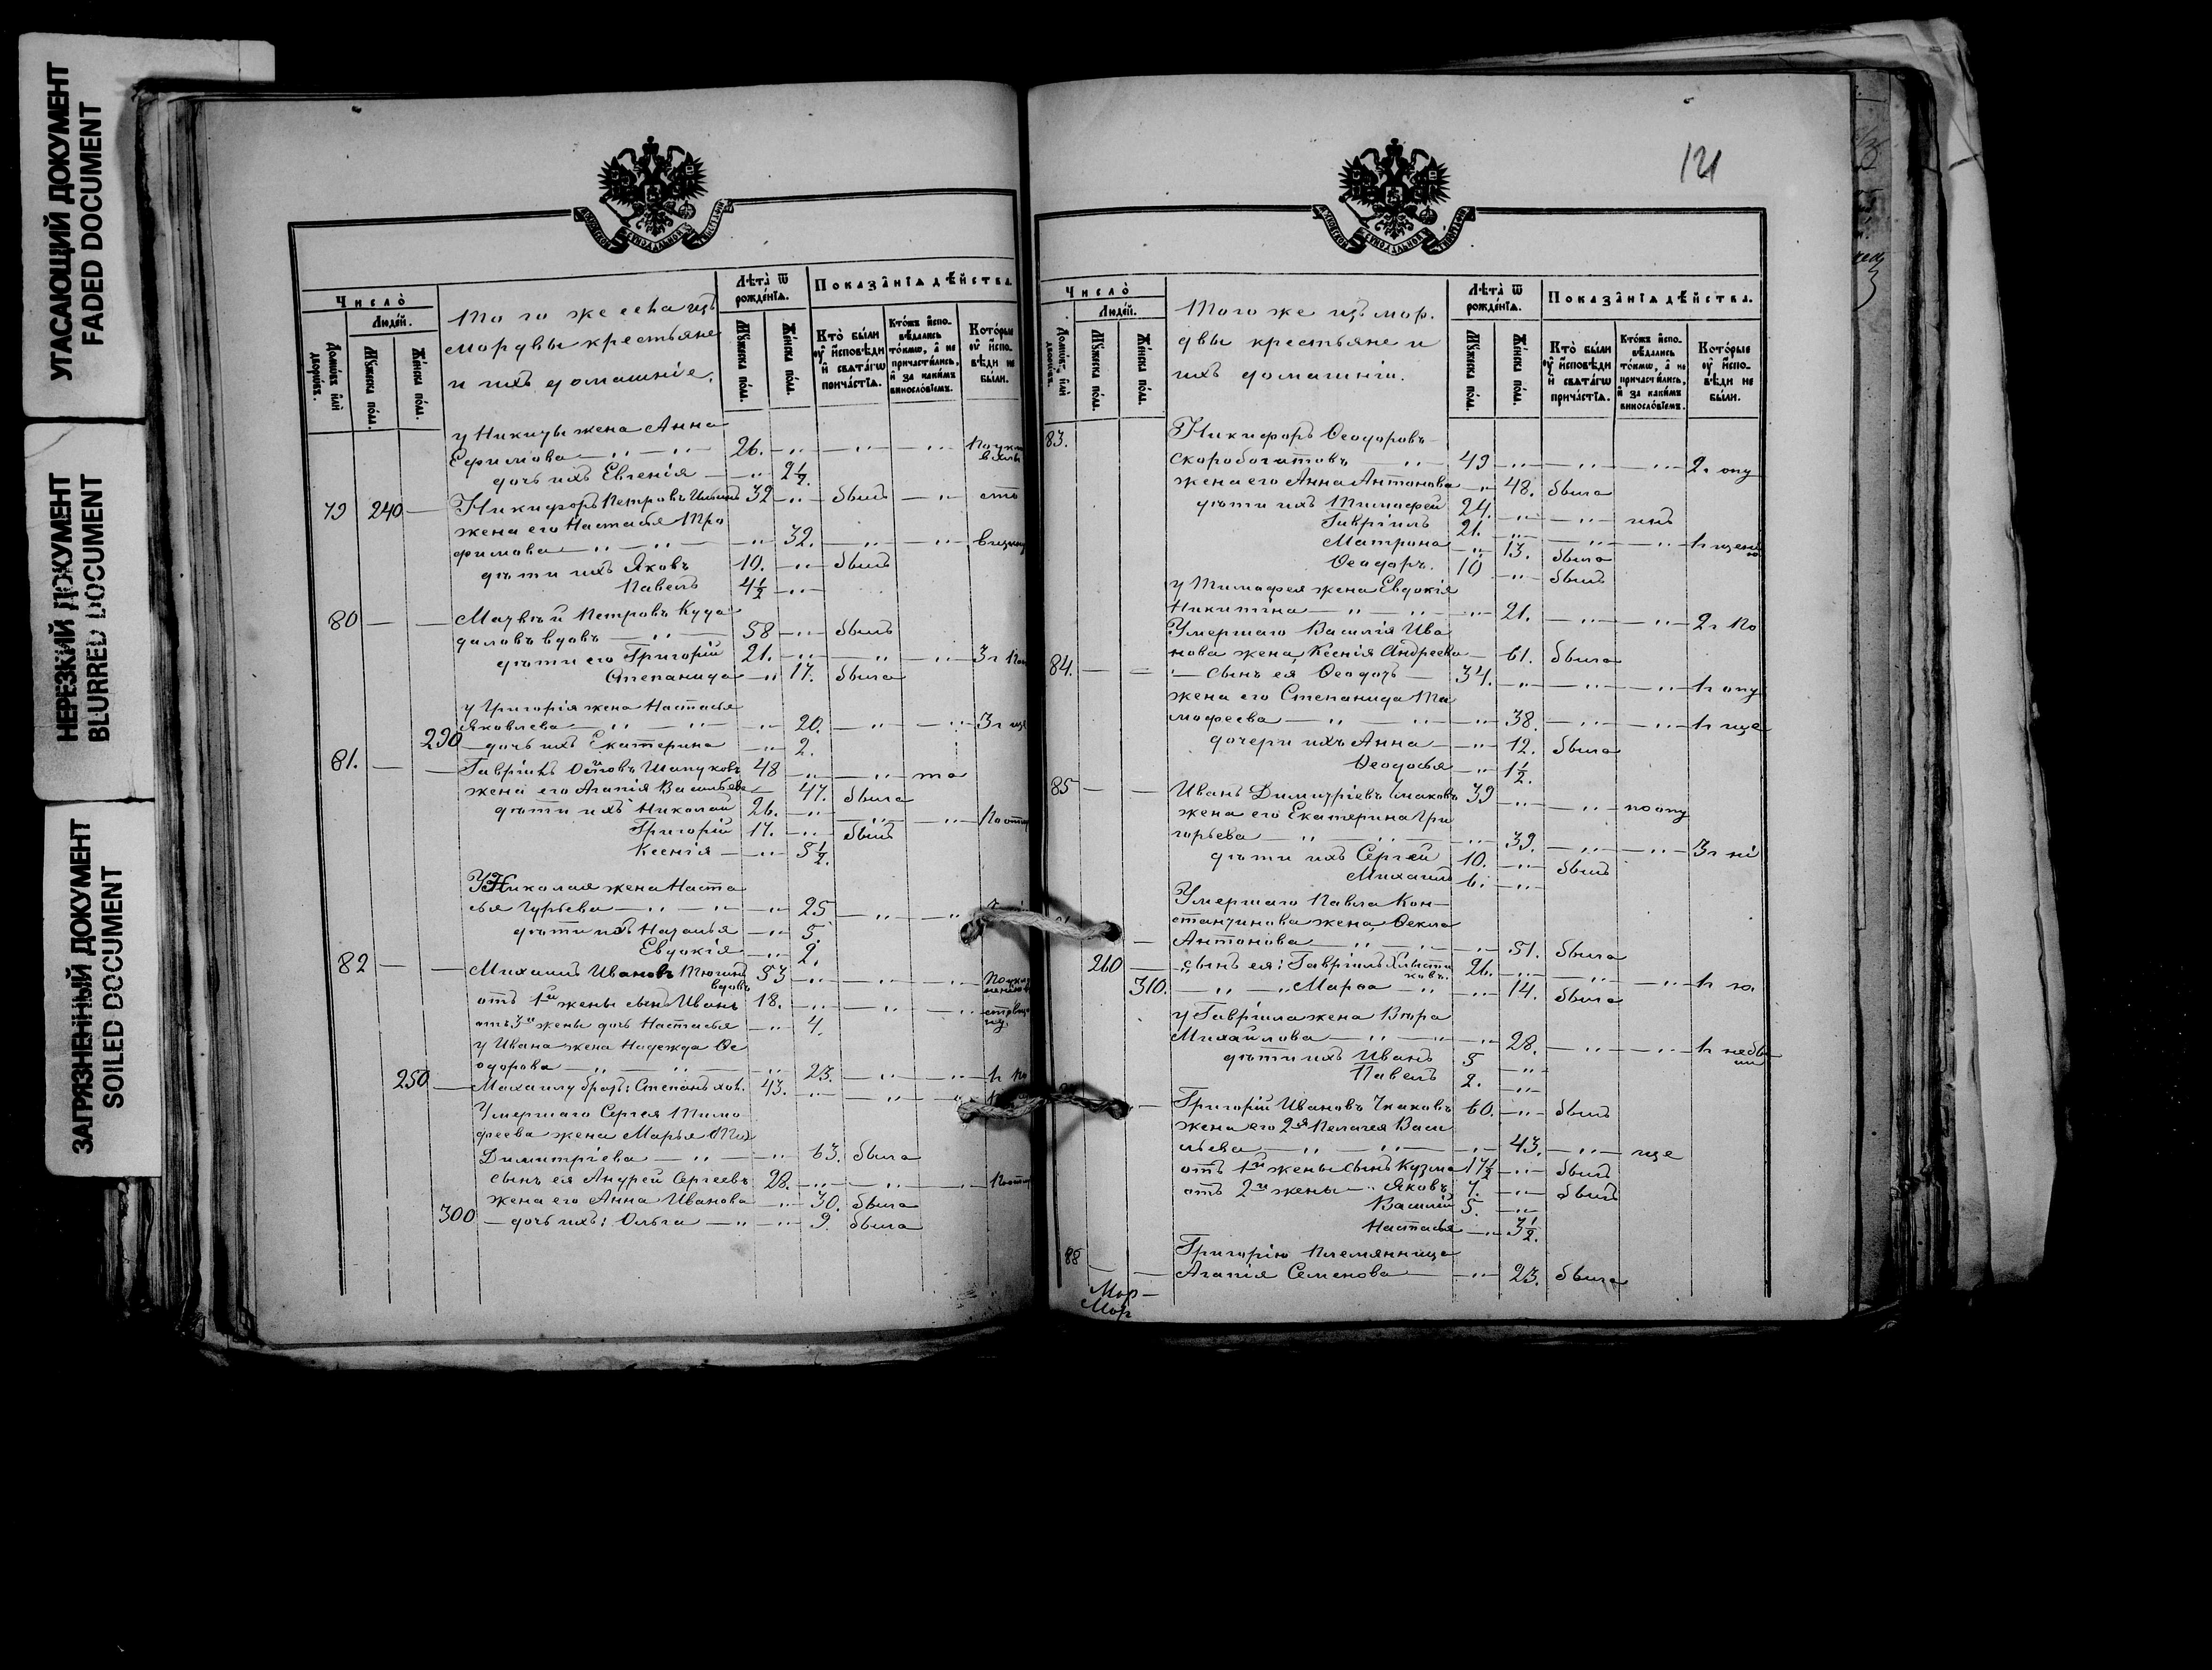 УГАСАЮЩИЙ ДОКУМЕНТ
FADED DOCUMENT
НЕРЕЗКИЙ ДОКУМЕНТ
BLURRED DOCUMENT
ЗАГРЯЗНЕННЫЙ ДОКУМЕНТ
SOILED DOCUMENT
Число̀
Людей.
Домѡвъ или дворѡвъ.
Мꙋжеска пола.
Женска пола.
Того же села изъ
мордвы крестьяне
и ихъ домашніе.
Лѣта ѿ рожденїѧ.
Мꙋжеска пола.
Женска пола.
Показанїѧ дѣйства.
Кто были оу исповѣди и свѧтагѡ причастїѧ.
Ктожъ исповѣдались токмѡ, а не причастились, и за какимъ винословїемъ.
Которые оу исповѣди не были.
у Никиты жена Анна
Ефимова 26.
дочь ихъ Евгенія 2½
79 240 Никифоръ Петровъ 32 былъ
жена его Настасья Тро
фимова 32.
дѣти ихъ Яковъ 10. былъ
Павелъ 4½
80 Матвѣй Петровъ Куда
даловъ вдовъ 58 былъ
дѣти его Григорій 21. 3 г
Степанида 17. была
у Григорія жена Настасья
Яковлева 20. 3 г
290 дочь ихъ Екатерина 2.
81. Гавріилъ 48
жена его Агапія Васильева 47. была
дѣти ихъ Николай 26.
Григорій 17. былъ
Ксенія 5½.
У Николая жена Наста
сья Гурьева 25
дѣти ихъ Наталья 5
Евдокія 2.
82 Михаилъ Ивановъ 53
вдовъ
отъ 1й жены сынъ Иванъ 18.
отъ 3й жены дочь Настасья 4.
у Ивана жена Надежда Ѳе
одорова 23.
250 Михаилу братъ: Степанъ 43.
Умершаго Сергея Тимо
феева жена Марья
Димитріева 63. была
сынъ ея Андрей Сергеевъ 28.
жена его Анна Иванова 30. была
300 дочь ихъ: Ольга 9. была
121
Число̀
Людей.
Домѡвъ или дворѡвъ.
Мꙋжеска пола.
Женска пола.
Того же изъ мор.
двы крестьяне и
ихъ домашніи.
Лѣта ѿ рожденїѧ.
Мꙋжеска пола.
Женска пола.
Показанїѧ дѣйства.
Кто были оу исповѣди и свѧтагѡ причастїѧ.
Ктожъ исповѣдались токмѡ, а не причастились, и за какимъ винословїемъ.
Которые оу исповѣди не были.
83. Никифоръ Ѳеодоровъ
Скоробогатовъ 49 2 г опу
жена его Анна Антонова 48. была
дѣти ихъ Тимофей 24.
Гавріилъ 21.
Матрона 13. была
Ѳеодоръ. 10 былъ
у Тимофея жена Евдокія
Никитина 21. 2 г по
Умершаго Василія Ива
нова жена Ксенія Андреева 61. была
84. сынъ ея Ѳеодотъ 34. 1 г опу
жена его Степанида Ти
мофеева 38.
дочери ихъ Анна 12. была
Ѳеодосья 1½.
85 Иванъ Димитріевъ 39 по опу
жена его Екатерина Гри
горьева 39. 3 г
дѣти ихъ Сергей 10. былъ
Михаилъ 6.
Умершаго Павла Кон
стантинова жена Ѳекла
Антонова 51. была
260 сынъ ея: Гавріилъ 26.
310. Марѳа 14. была
у Гавріила жена Вѣра
Михайлова 28.
дѣти ихъ Иванъ 5
Павелъ 2.
Григорій Ивановъ 60. былъ
жена его 2я Пелагея Васи
льева 43.
отъ 1й жены сынъ Кузма 17½ былъ
отъ 2й жены Яковъ 7. былъ
Василій 5.
Настасья 3½.
Григорію племянница
88 Агапія Семенова 23. была